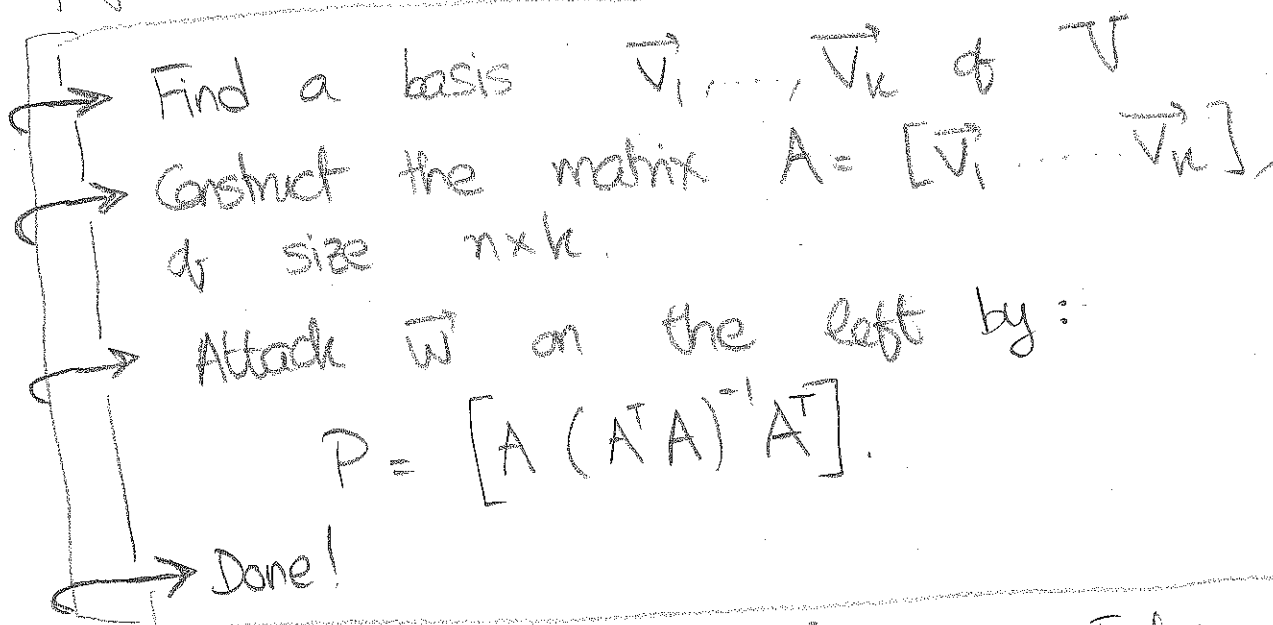 → Find a basis v⃗₁, ..., v⃗ₖ of V
→ Construct the matrix A = [v⃗₁ ..... v⃗ₖ],
of size n×k.
→ Attack w⃗ on the left by:
P = [A (AᵀA)⁻¹ Aᵀ].
→ Done!